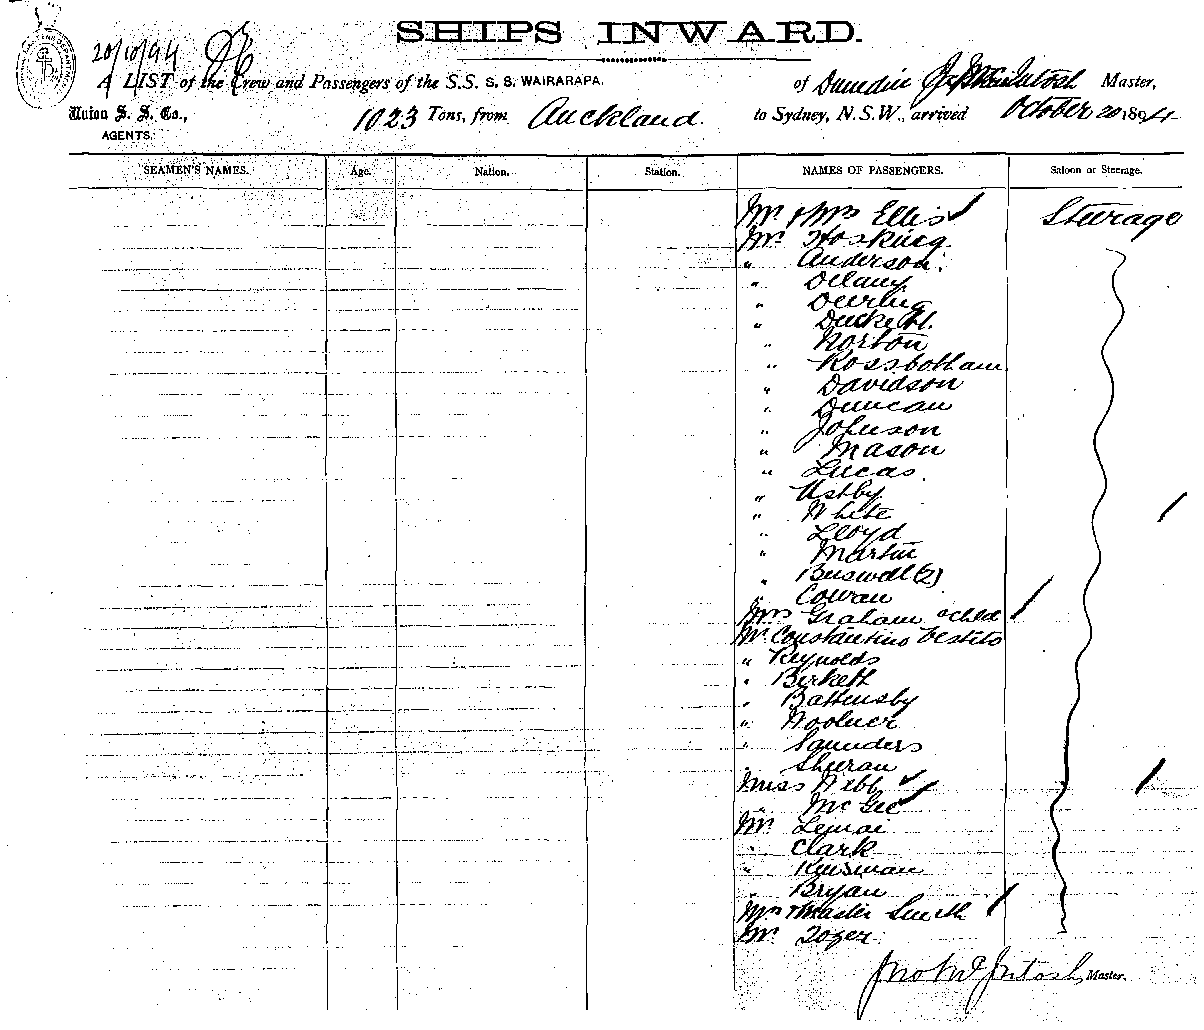 SHIPS INWARD.
20/10/94
A LIST of the Crew and Passengers of the S.S. S. S. WAIRARAPA. of Dunedin Jno McIntosh Master,
Union S. S. Co., 1023 Tons, from Auckland. to Sydney, N. S. W., arrived October 20 1894
AGENTS.
SEAMEN'S NAMES. Age. Nation. Station. NAMES OF PASSENGERS. Saloon or Steerage.
Mr & Mrs Ellis Steerage
Mr Hosking
" Anderson
" Delany
" Deering
" Duckett.
" Norton
" Rossbotham
" Davidson
" Duncan
" Johnson
" Mason
" Lucas
" Ustby
" White
" Lloyd
" Martin
" Buswell (2)
" Cowan
Mrs Graham & chld
Mr Constantino Testito
" Reynolds
" Birkett
" Battensby
" Woolner
" Saunders
" Sheeran
Miss Webb
" McGee
Mr Lemai
" Clark
" Kinsman
" Bryan
Mrs & Master Smith
Mr Tozer
Jno McIntosh Master.